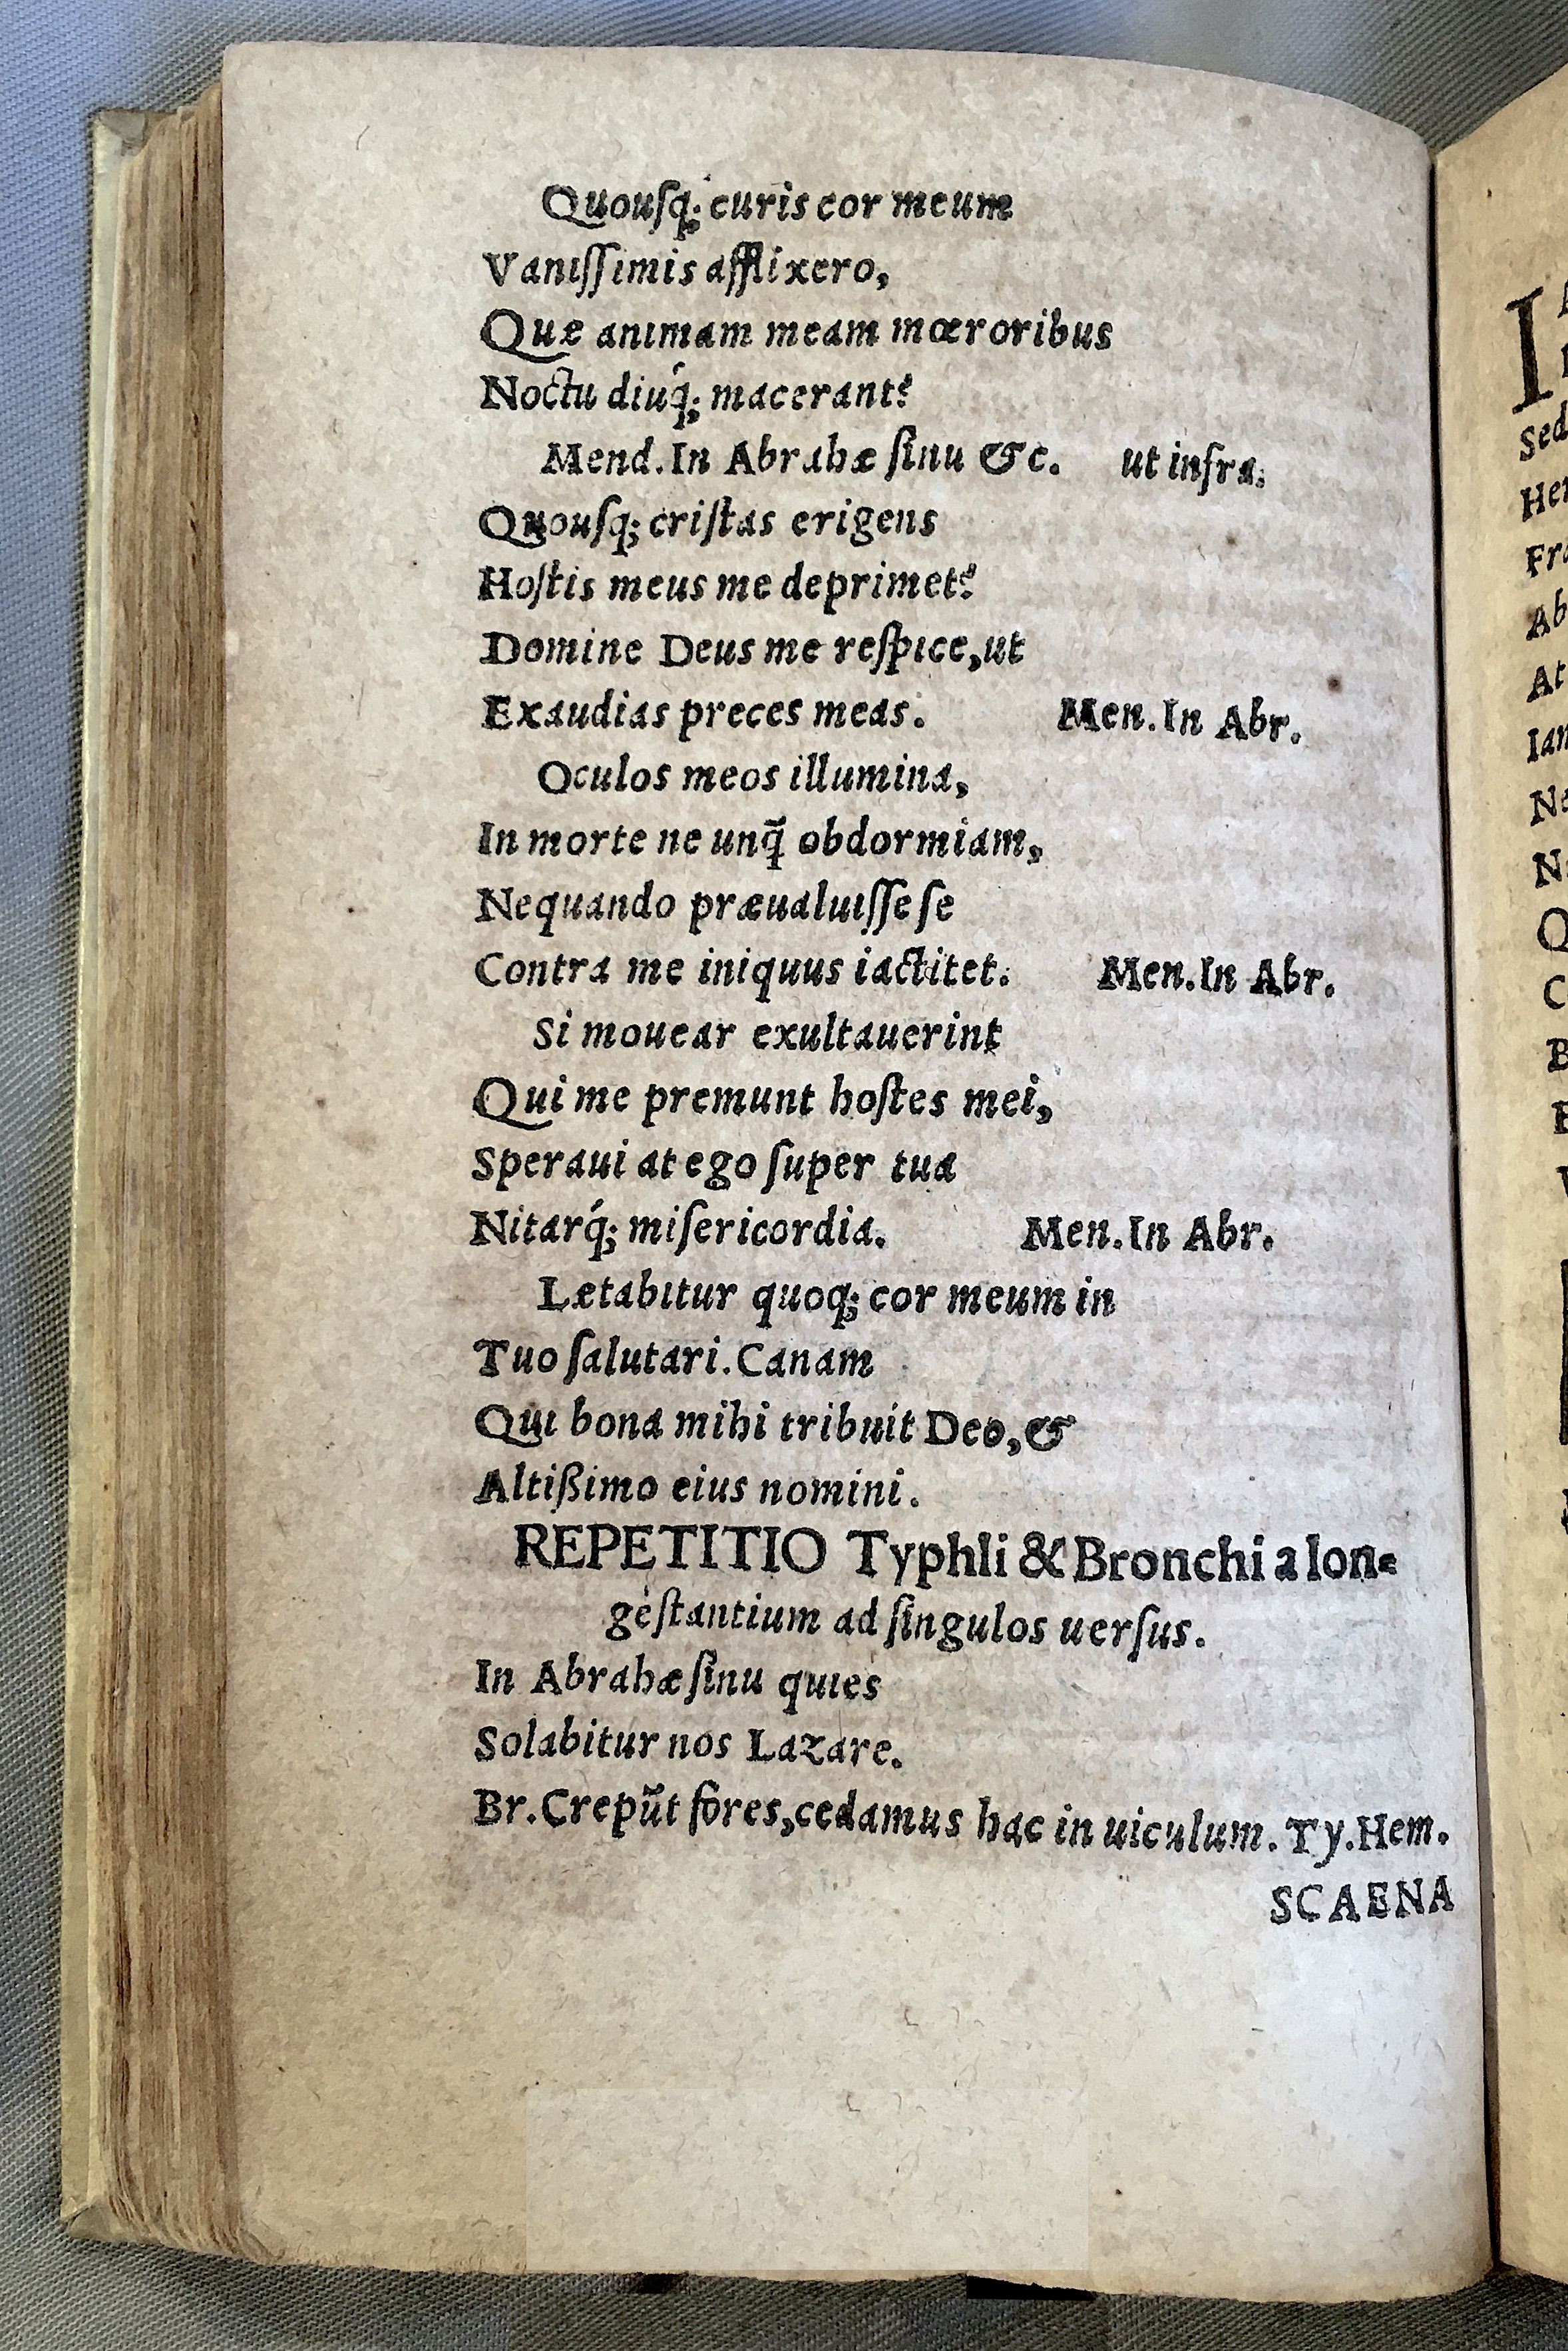 Quouſq; curis cor meum
Vaniſſimis afflixero,
Quæ animam meam mœroribus
Noctu diuq́; macerant?
Mend. In Abrahæ ſinu &c. ut infra.
Quouſq; criſtas erigens
Hoſtis meus me deprimet?
Domine Deus me reſpice, ut
Exaudias preces meas. Men. In Abr.
Oculos meos illumina,
In morte ne unq̃ obdormiam,
Nequando præualuiſſe ſe
Contra me iniquus iactitet. Men. In Abr.
Si mouear exultauerint
Qui me premunt hoſtes mei,
Speraui at ego ſuper tua
Nitarq́; miſericordia. Men. In Abr.
Lætabitur quoq; cor meum in
Tuo ſalutari. Canam
Qui bona mihi tribuit Deo, &
Altißimo eius nomini.
REPETITIO Typhli & Bronchi a lon-
gè ſtantium ad ſingulos uerſus.
In Abrahæ ſinu quies
Solabitur nos Lazare.
Br. Crepũt fores, cedamus hac in uiculum. Ty. Hem.
SCAENA
I
Sed
Her
Fra
Ab
At
Ian
Ne
N
Q
C
B
E